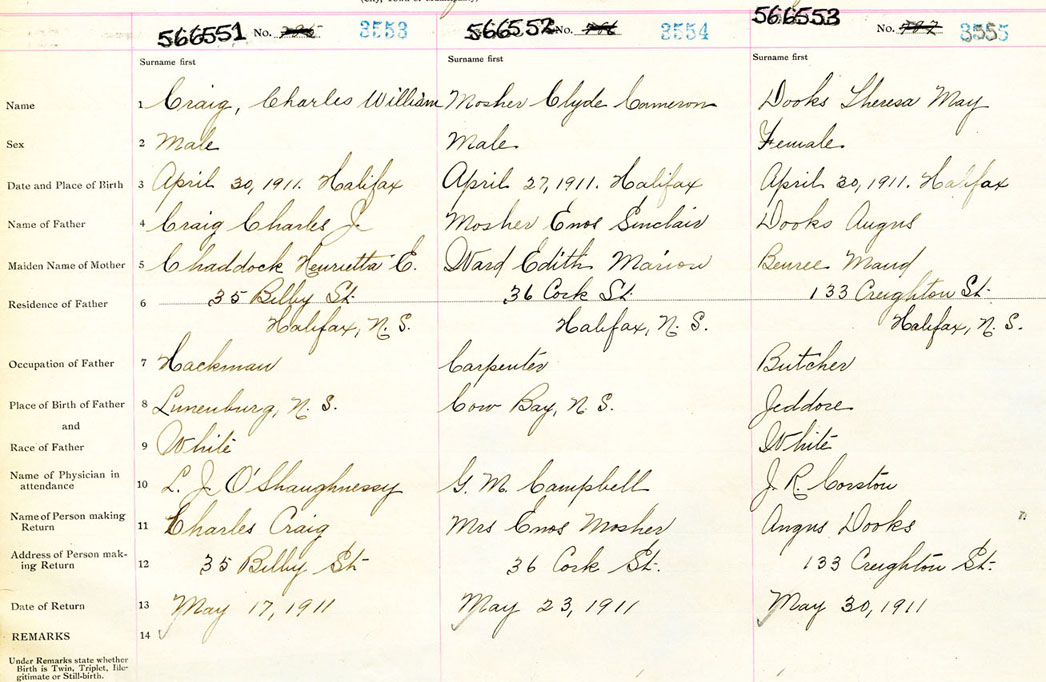 566551 No. 3553 566552 No. 3554 566553 No. 3555
Surname first Surname first Surname first
Name 1 Craig, Charles William Mosher Clyde Cameron Dooks Theresa May
Sex 2 Male Male Female
Date and Place of Birth 3 April 30, 1911. Halifax April 27, 1911. Halifax April 30, 1911. Halifax
Name of Father 4 Craig Charles J. Mosher Enos Sinclair Dooks Angus
Maiden Name of Mother 5 Chaddock Henrietta E. Ward Edith Marion Maud
Residence of Father 6 35 Bilby St. 36 Cork St. 133 Creighton St.
Halifax, N. S. Halifax, N. S. Halifax, N. S.
Occupation of Father 7 Hackman Carpenter Butcher
Place of Birth of Father 8 Lunenburg, N. S. Cow Bay, N. S. Jeddore
and
Race of Father 9 White White
Name of Physician in
attendance 10 L. J. O'Shaughnessy G. M. Campbell J. R. Corston
Name of Person making
Return 11 Charles Craig Mrs Enos Mosher Angus Dooks
Address of Person mak-
ing Return 12 35 Bilby St. 36 Cork St. 133 Creighton St.
Date of Return 13 May 17, 1911 May 23, 1911 May 30, 1911
REMARKS 14
Under Remarks state whether
Birth is Twin, Triplet, Ille-
gitimate or Still-birth.